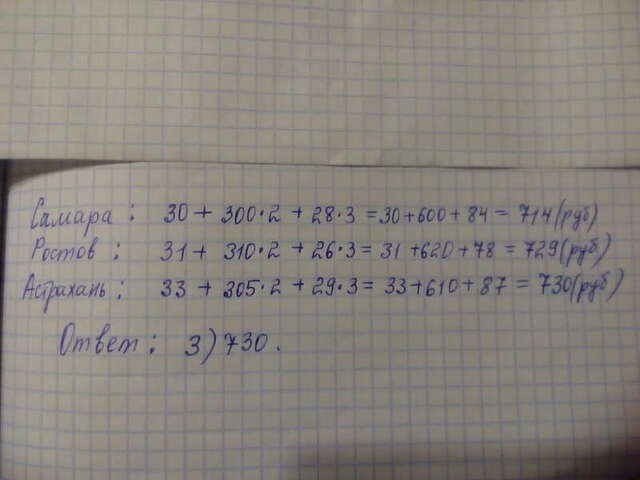 Самара: 30 + 300·2 + 28·3 = 30+600+84 = 714(руб)
Ростов: 31 + 310·2 + 26·3 = 31+620+78 = 729(руб)
Астрахань: 33 + 305·2 + 29·3 = 33+610+87 = 730(руб)
Ответ: 3) 730.